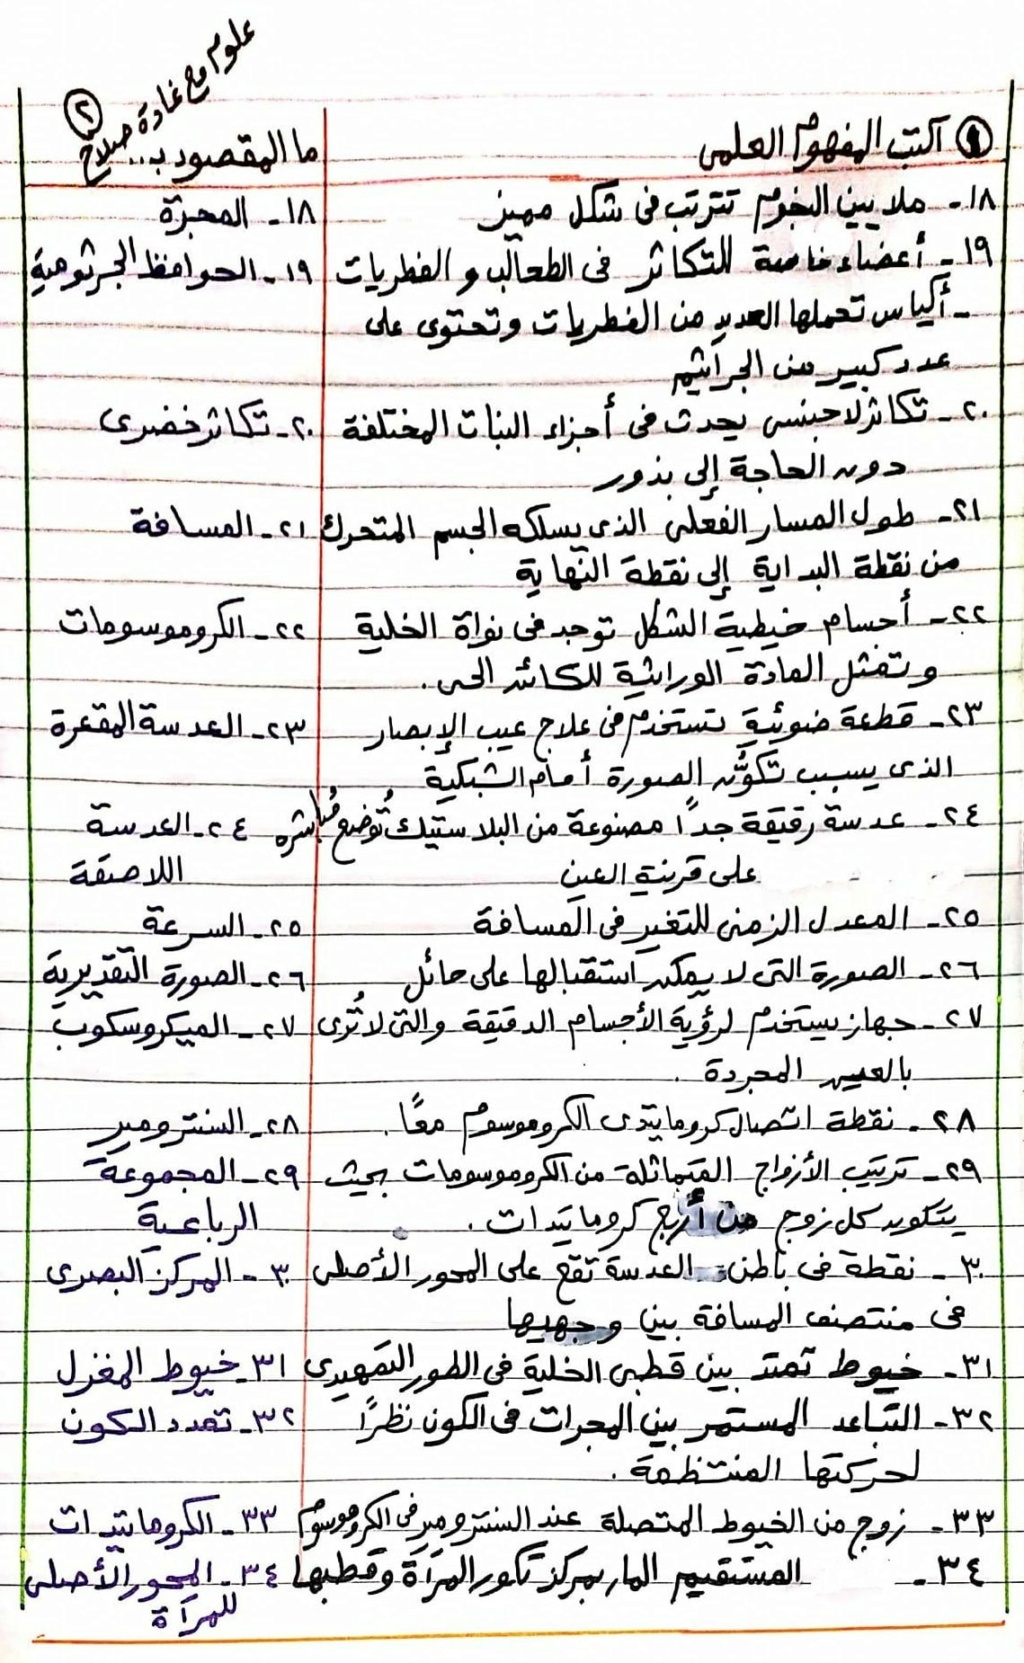 علوم مع غادة صلاح
٢
١ اكتب المفهوم العلمى
ما المقصود بـ..
١٨- ملايين النجوم تترتب فى شكل مميز
١٨- المجرة
١٩- أعضاء خاصة للتكاثر فى الطحالب و الفطريات
١٩- الحوافظ الجرثومية
- أكياس تحملها العديد من الفطريات وتحتوى على
عدد كبير من الجراثيم
٢٠- تكاثر لاجنسى يحدث فى أجزاء النبات المختلفة
٢٠- تكاثر خضرى
دون الحاجة إلى بذور
٢١- طول المسار الفعلى الذى يسلكه الجسم المتحرك
٢١- المسافة
من نقطة البداية إلى نقطة النهاية
٢٢- أجسام خيطية الشكل توجد فى نواة الخلية
٢٢- الكروموسومات
وتمثل المادة الوراثية للكائن الحى.
٢٣- قطعة ضوئية تستخدم فى علاج عيب الإبصار
٢٣- العدسة المقعرة
الذى يسبب تكوُّن الصورة أمام الشبكية
٢٤- عدسة رقيقة جداً مصنوعة من البلاستيك تُوضع مُباشره
٢٤- العدسة
على قرنية العين
اللاصقة
٢٥- المعدل الزمنى للتغير فى المسافة
٢٥- السرعة
٢٦- الصورة التى لا يمكن استقبالها على حائل
٢٦- الصورة التقديرية
٢٧- جهاز يستخدم لرؤية الأجسام الدقيقة والتى لا تُرى
٢٧- الميكروسكوب
بالعين المجردة.
٢٨- نقطة اتصال كروماتيدى الكروموسوم معًا.
٢٨- السنترومير
٢٩- ترتيب الأزواج المتماثلة من الكروموسومات بحيث
٢٩- المجموعة
يتكون كل زوج من أربع كروماتيدات.
الرباعية
٣٠- نقطة فى باطن العدسة تقع على المحور الأصلى
٣٠- المركز البصرى
فى منتصف المسافة بين وجهيها
٣١- خيوط تمتد بين قطبى الخلية فى الطور التمهيدى
٣١- خيوط المغزل
٣٢- التباعد المستمر بين المجرات فى الكون نظرًا
٣٢- تمدد الكون
لحركتها المنتظمة.
٣٣- زوج من الخيوط المتصلة عند السنترومير فى الكروموسوم
٣٣- الكروماتيدات
٣٤- المستقيم المار بمركز تكور المرآة وقطبها
٣٤- المحور الأصلى
للمرآة